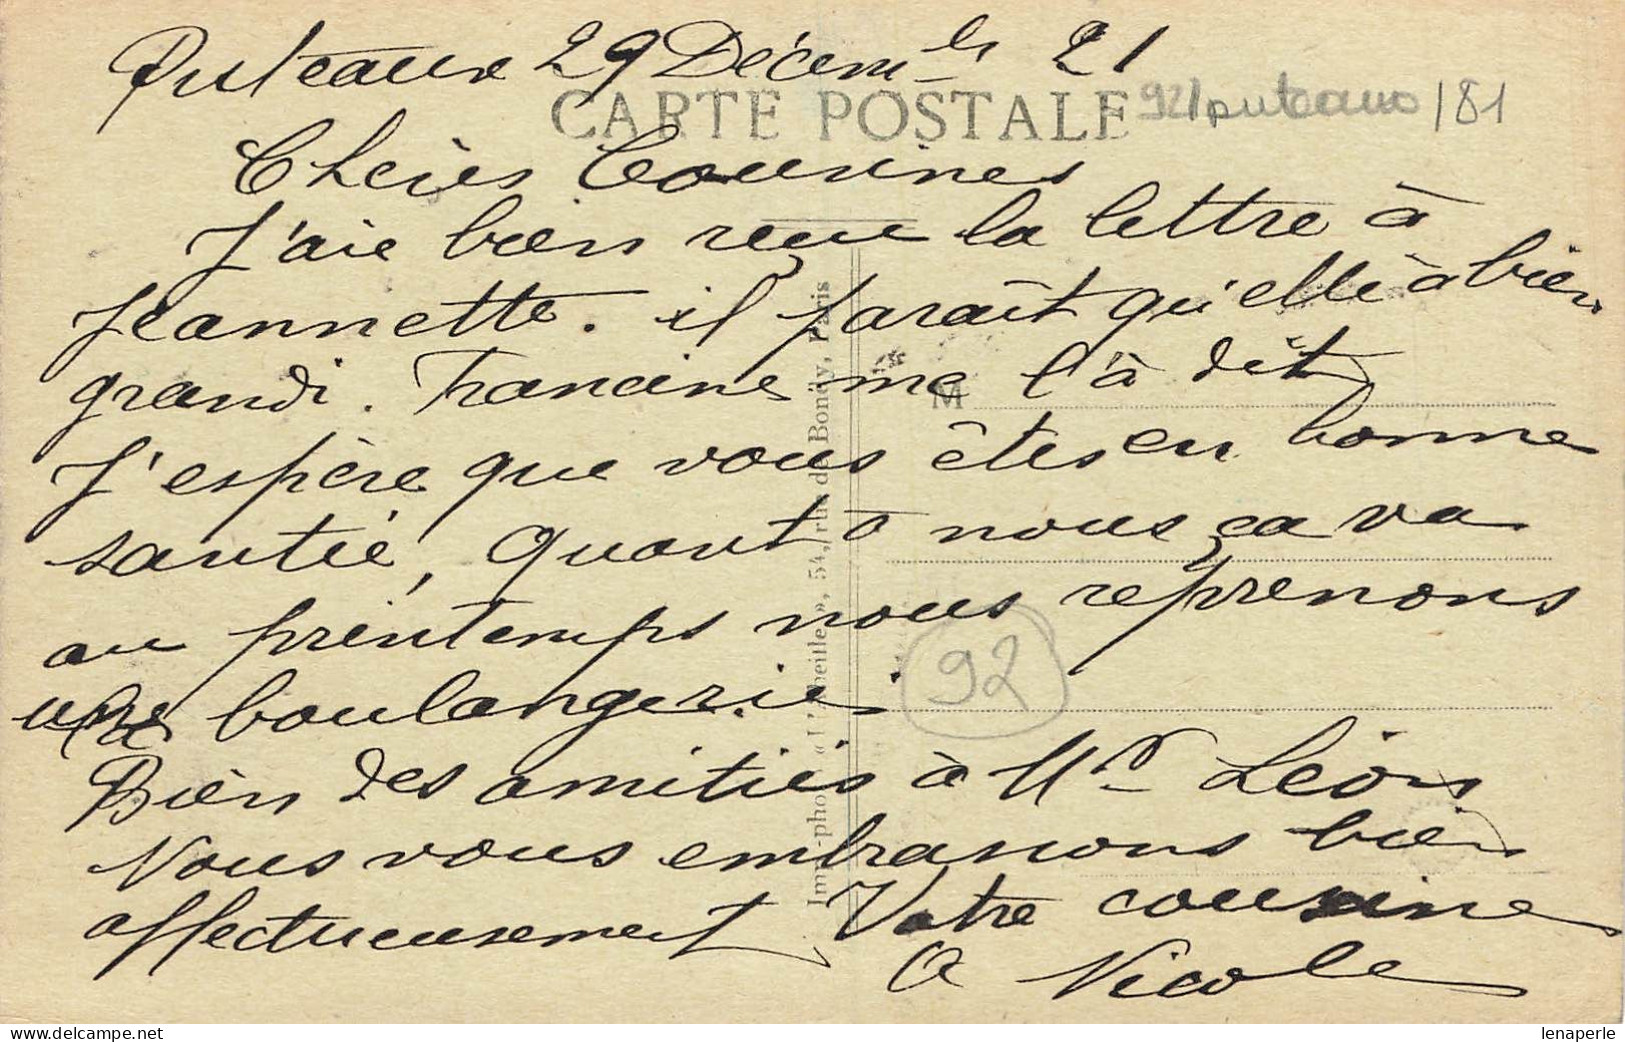 Puteaux 29 Décembre 21
CARTE POSTALE
92/puteaux /81
Chères Cousines
J'aie bien reçu la lettre à
Jeannette. il paraît qu'elle à bien
grandi. Francine me l'à dit
M
J'espère que vous êtes en bonne
santé, quant à nous ça va
au printemps nous reprenons
une boulangerie.
92
Bien des amitiés à Mr Léon
Nous vous embrassons bien
affectueusement Votre cousine
Nicole
Imp.-phot. « L'Abeille », 54, rue de Bondy, Paris
delcampe.net
lenaperle